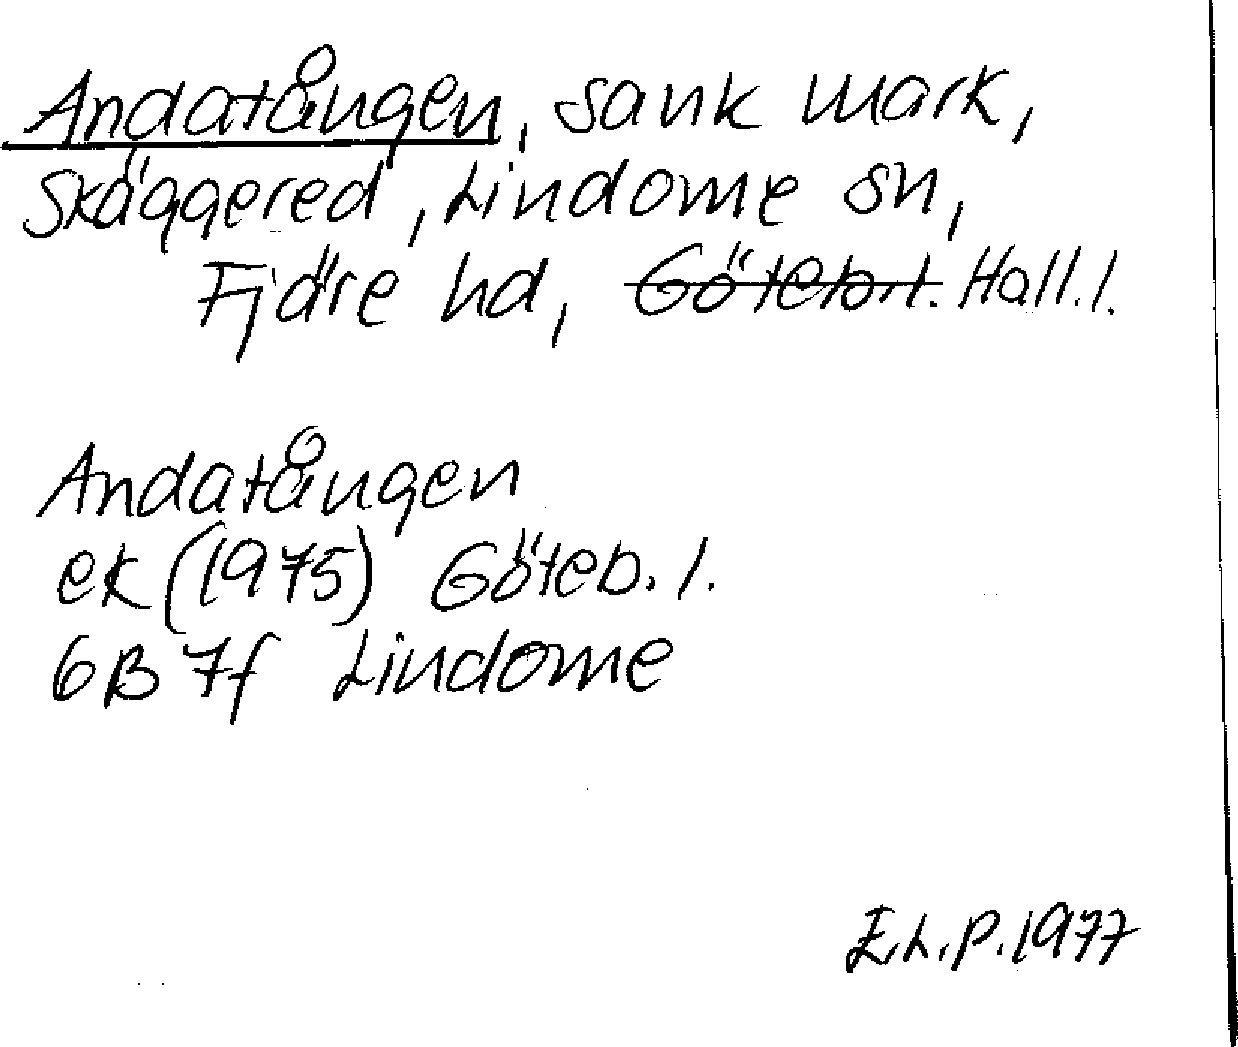 Andatången, sank mark,
Skäggered, Lindome sn,
Fjäre hd, Göteb. l. Hall. l.
Andatången
ek (1975) Göteb. l.
6B 7f Lindome
E.L.P. 1977